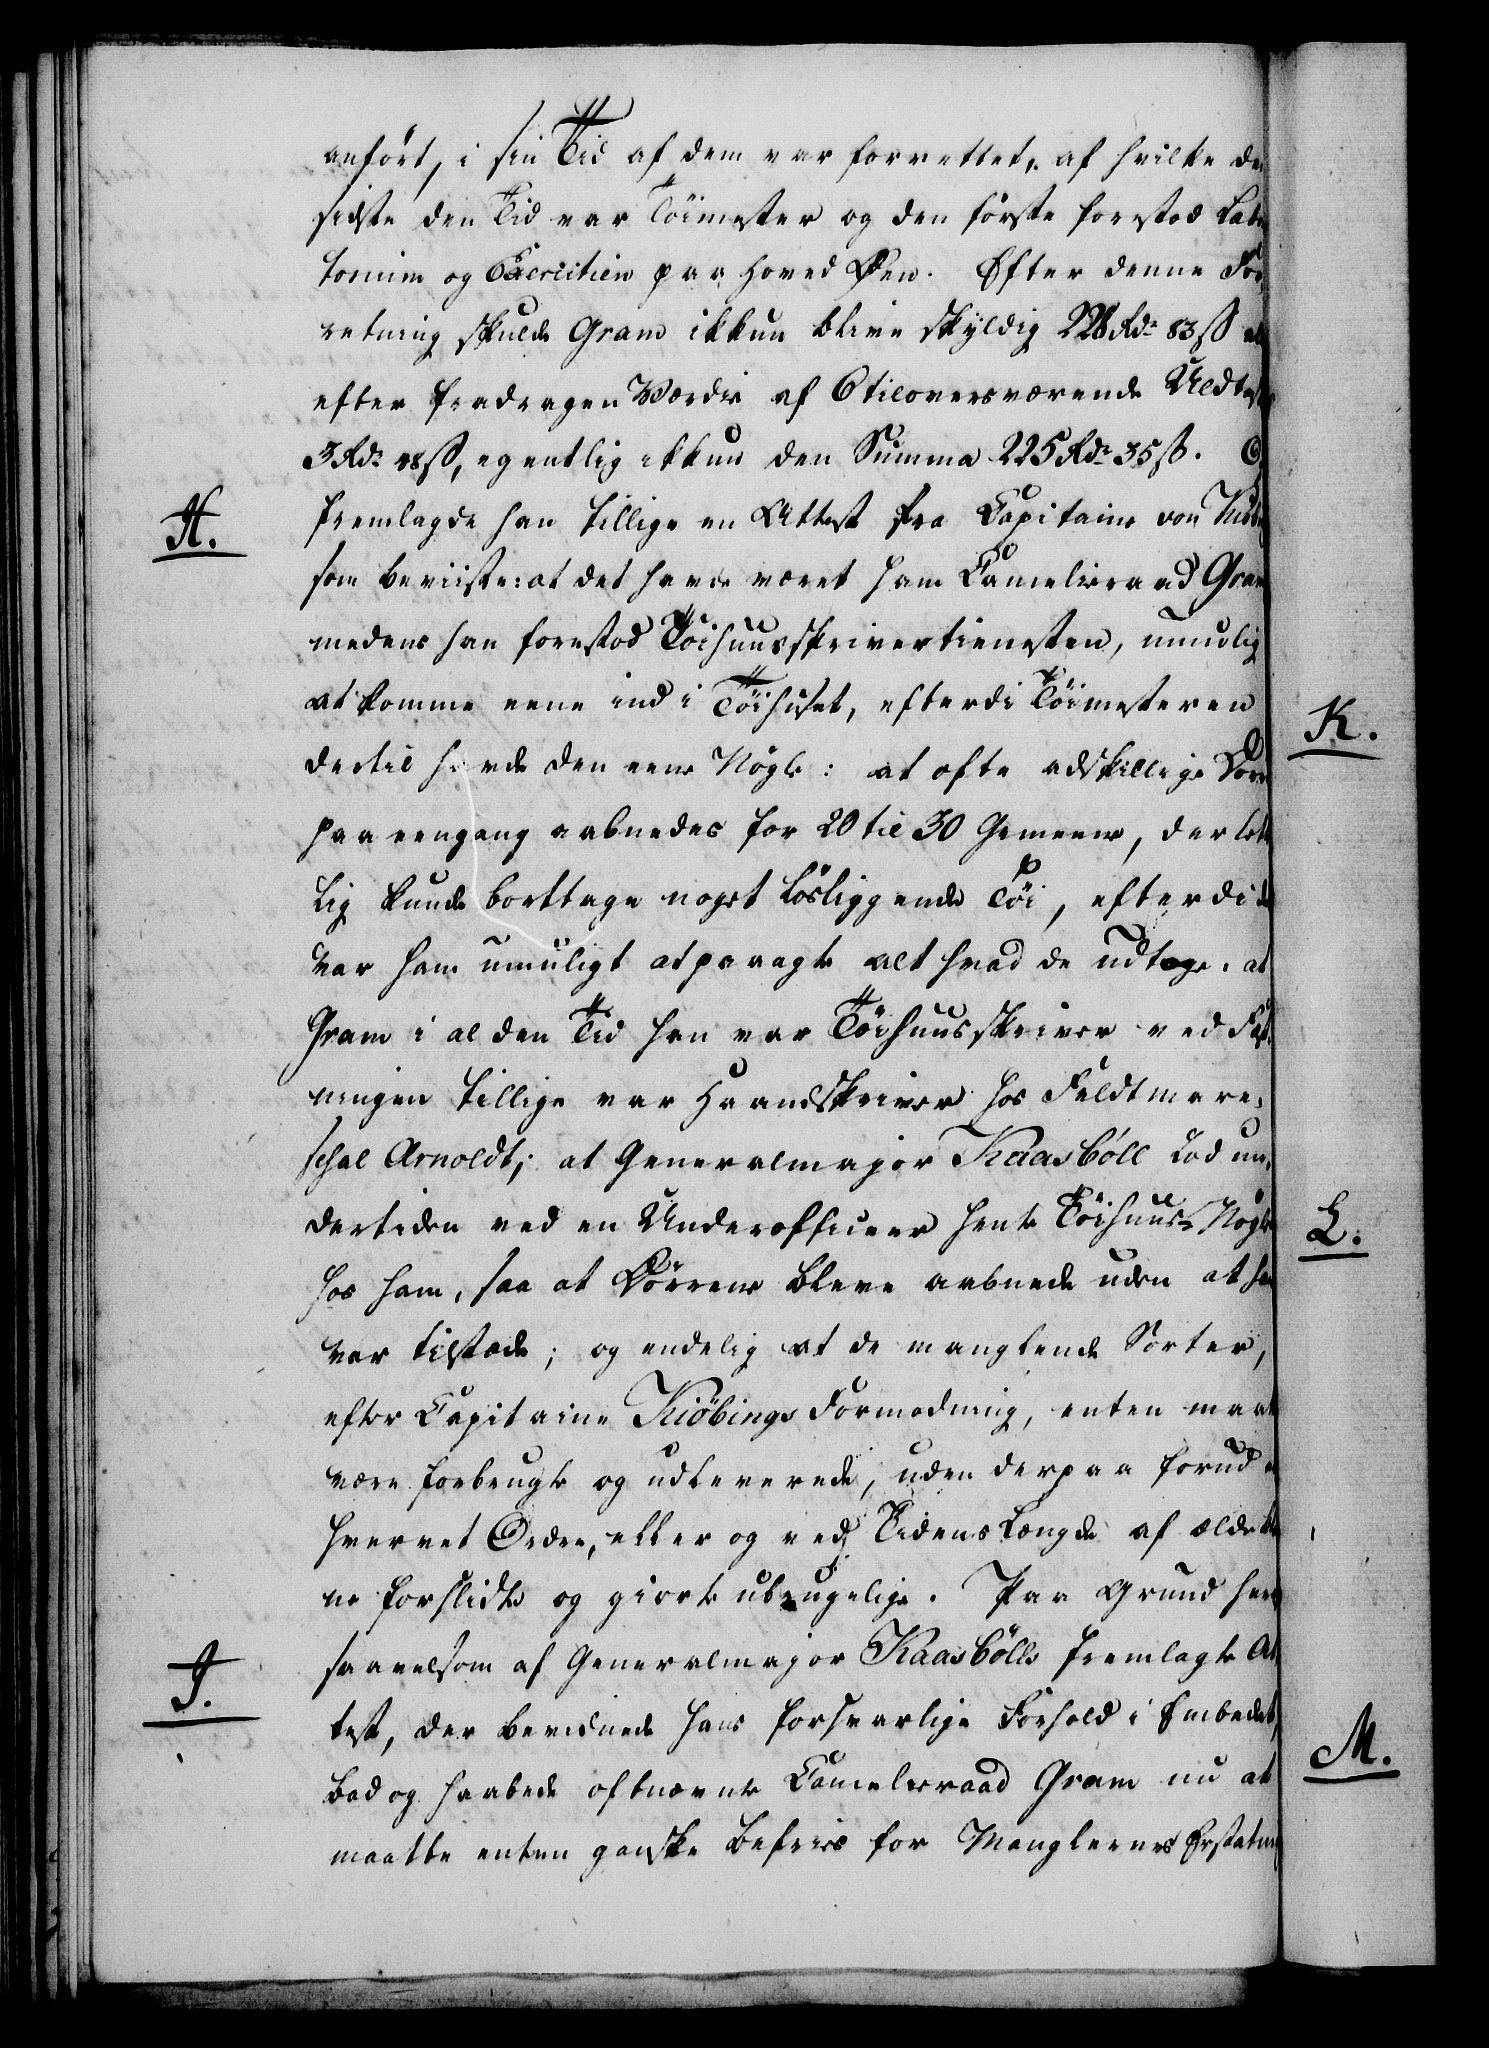 anført, i sin Tid af dem var forrettet, af hvilke de
sidste den Tid var Töimester og den første forestod Labo
torium og Exercitien paa Hoved Øen. Efter denne For
retning skulde Gram ikkun blive skyldig 228 Rdr 83 ß
efter fradragen Værdie af 6 tiloversværende
3 Rdr 48 ß, egentlig ikkun den Summa 225 Rdr 35 ß.
H.
fremlagde han tillige en Attest fra Capitaine von
som beviiste: at det havde været ham Cancelieraad Gram
medens han forestod Töihuusskrivertienesten, umulig
at komme eene ind i Töihuset, efterdi Töimesteren
K.
dertil havde den eene Nøgle: at ofte adskillige Dörre
paa eengang aabnedes for 20 til 30 Gemeene, der let
lig kunde borttage noget løsliggende Töi, efterdi de
var ham umuligt at paaagte alt hvad de udtoge. at
Gram i al den Tid han var Töihuusskriver ved Fæst
ningen tillige var Haandskriver hos Feldtmare-
schal Arnoldt; at Generalmajor Kaasböll lod un-
dertiden ved en Underofficeer hente Töihuus-Nøgle
L.
hos ham, saa at Dörrene bleve aabnede uden at han
var tilstæde; og endelig at de manglende Sorter,
efter Capitaine Kiöbings Formodning, enten maat
være forbrugte og udleverede, uden derpaa forud
hvervet Ordre, eller og ved Tidens Længde af Ælde ble
ne forslidte og giorte ubrugelige. Paa Grund her
saavelsom af Generalmajor Kaasbölls fremlagte At
J.
test, der bevidnede hans forsvarlige Forhold i Embedet,
M.
bad og haabede oftnævnte Cancelieraad Gram nu at
maatte enten ganske befries for Manglernes Erstatning